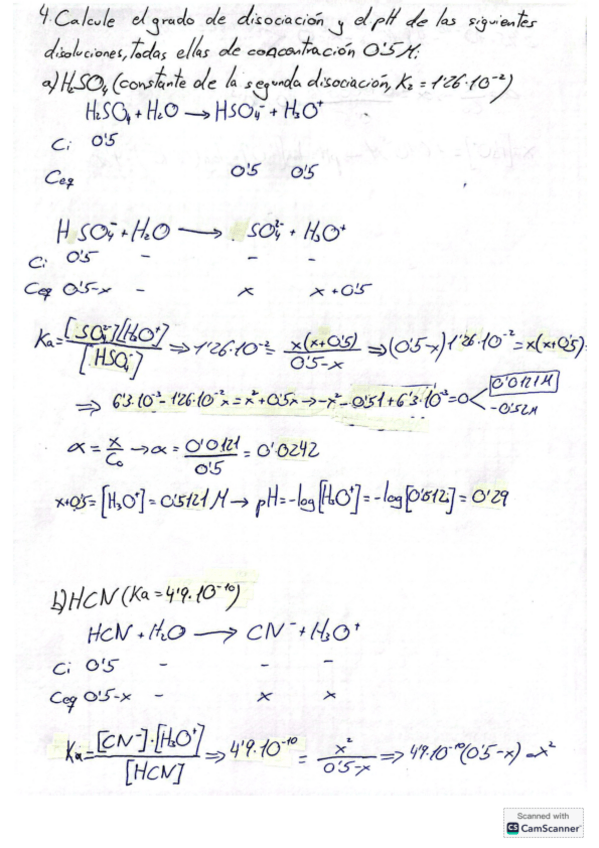 4. Calcule el grado de disociación y el pH de las siguientes
disoluciones, todas ellas de concentración 0'5 M:
a) H₂SO₄ (constante de la segunda disociación, K₂ = 1'26·10⁻²)
H₂SO₄ + H₂O → HSO₄⁻ + H₃O⁺
Ci 0'5
Ceq 0'5 0'5
HSO₄⁻ + H₂O → SO₄²⁻ + H₃O⁺
Ci 0'5 - - -
Ceq 0'5-x - x x+0'5
Ka = [SO₄²⁻][H₃O⁺] / [HSO₄⁻] ⇒ 1'26·10⁻² = x(x+0'5) / 0'5-x ⇒ (0'5-x) 1'26·10⁻² = x(x+0'5)
⇒ 6'3·10⁻³ - 1'26·10⁻²x = x² + 0'5x → -x² - 0'51 + 6'3·10⁻³ = 0 < 0'0121M
-0'52M
α = x/C₀ → α = 0'0121 / 0'5 = 0'0242
x+0'5 = [H₃O⁺] = 0'5121 M → pH = -log[H₃O⁺] = -log[0'5121] = 0'29
b) HCN (Ka = 4'9·10⁻¹⁰)
HCN + H₂O → CN⁻ + H₃O⁺
Ci 0'5 - - -
Ceq 0'5-x - x x
Ka = [CN⁻]·[H₃O⁺] / [HCN] ⇒ 4'9·10⁻¹⁰ = x² / 0'5-x ⇒ 4'9·10⁻¹⁰(0'5-x) = x²
Scanned with
CS CamScanner